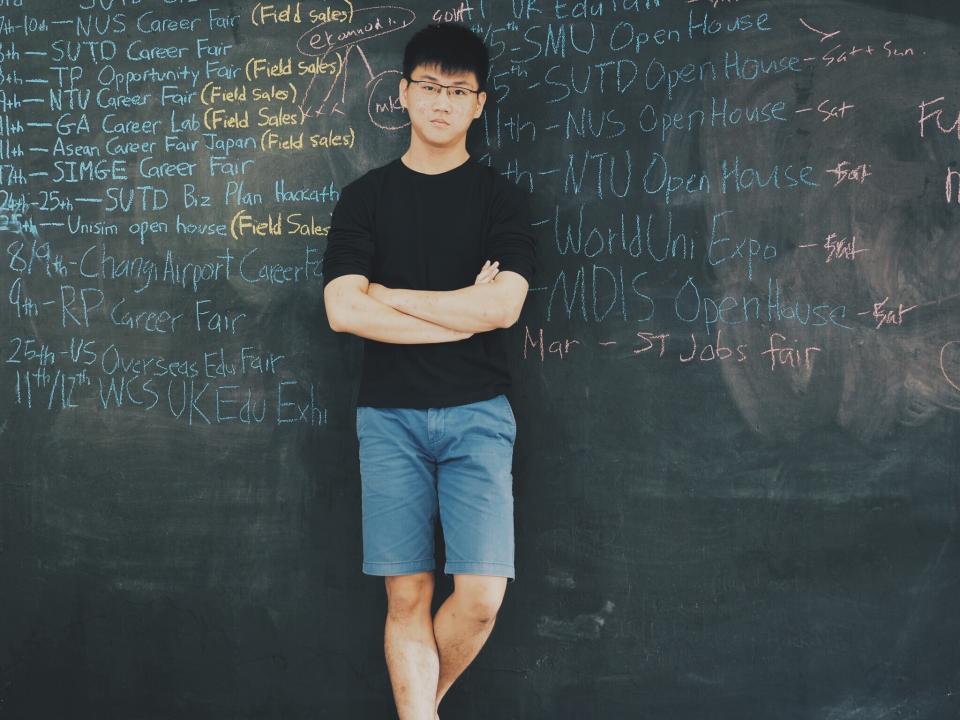 7th-10th — NUS Career Fair (Field sales)
SUTD Career Fair
TP Opportunity Fair (Field Sales)
NTU Career Fair (Field Sales)
11th — GA Career Lab (Field Sales)
11th — Asean Career Fair Japan (Field sales)
17th — SIMGE Career Fair
24th-25th — SUTD Biz Plan Hackath
25th — Unisim open house (Field Sales
8/9th - Changi Airport Career Fa
9th - RP Career Fair
25th - US Overseas Edu Fair
11th/12th WCS UK Edu Exhi
UK Edu Fair
/5 - SMU Open House
5th - SUTD Open House - Sat + Sun.
11th - NUS Open House - Sat
th - NTU Open House - Sat
- World Uni Expo - Sat
- MDIS Open House - Sat
Mar - ST Jobs fair